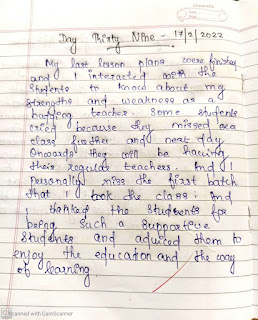 Day Thirty Nine - 17/2/2022
My last lesson plans were finished
and I interacted with the
Students to know about my
strengths and weakness as a
budding teacher. Some students
cried because they missed
class further and next day
Onwards they will be having
their regular teachers. And I
Personally miss the first batch
that I took the class. And
I thanked the Students for
being such a supportive
Students and adviced them to
enjoy the education and the way
of learning
Scanned with CamScanner